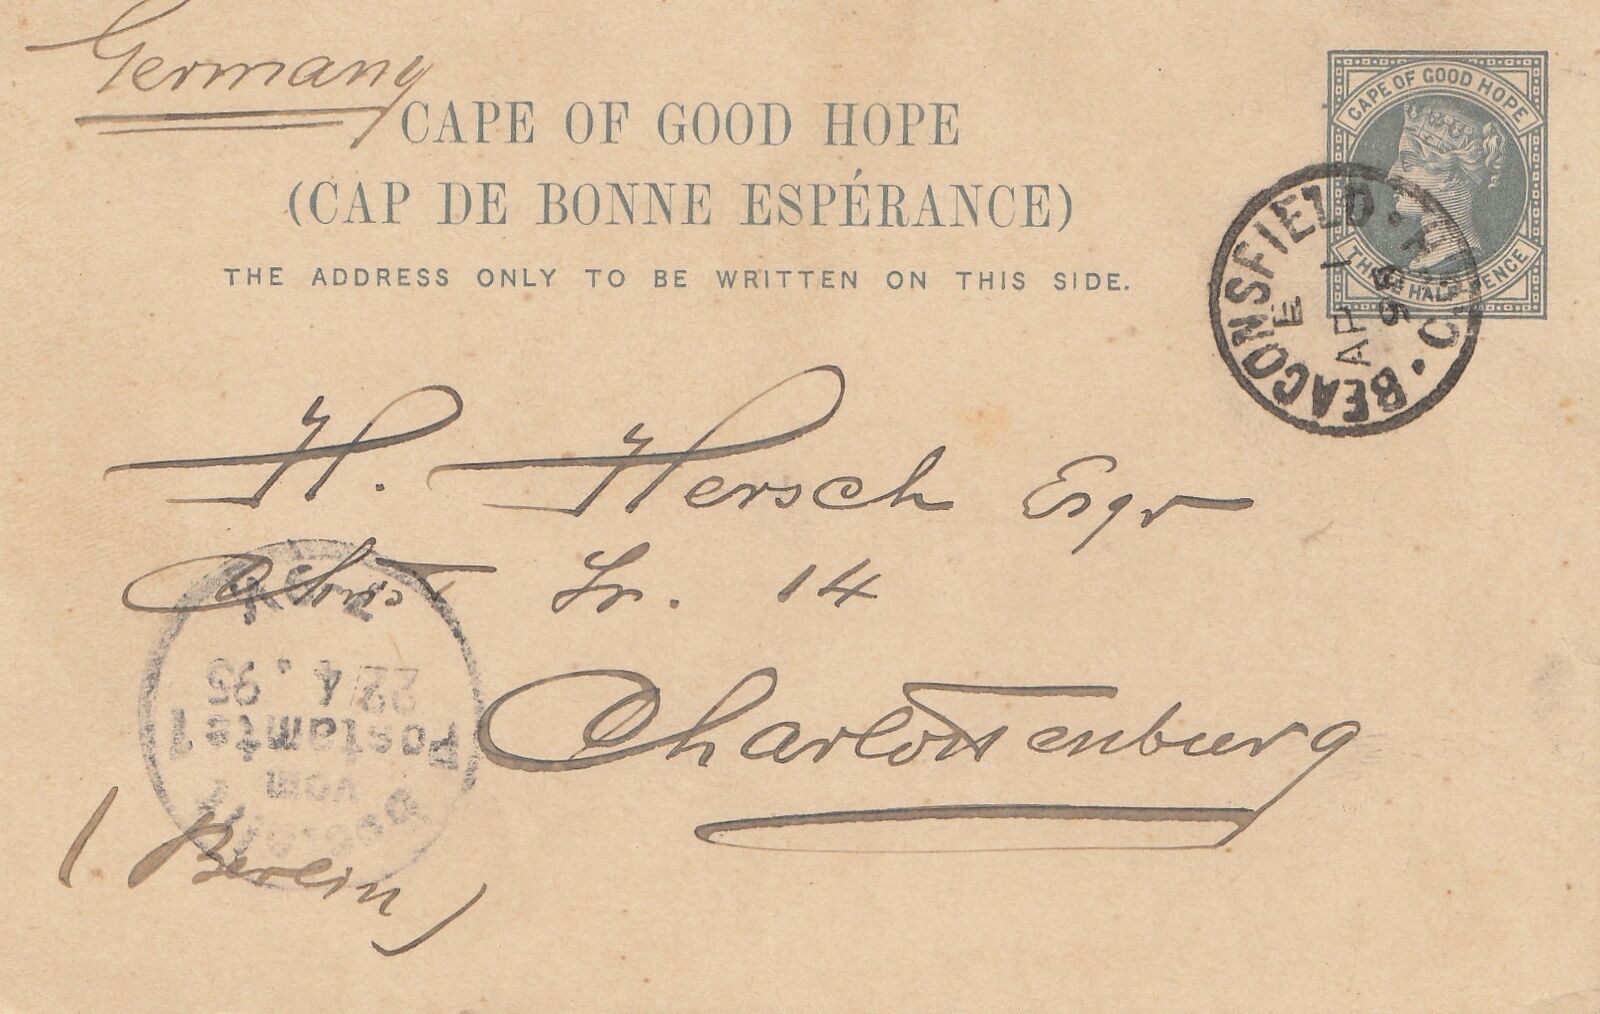 Germany
CAPE OF GOOD HOPE
(CAP DE BONNE ESPÉRANCE)
THE ADDRESS ONLY TO BE WRITTEN ON THIS SIDE.
CAPE OF GOOD HOPE
THREE HALF PENCE
BEACONSFIELD
E
AP 1
95
H. Hersch Esqr
Str. 14
Charlottenburg
(Berlin)
Bestellt
vom
Postamte 1
22/4.95